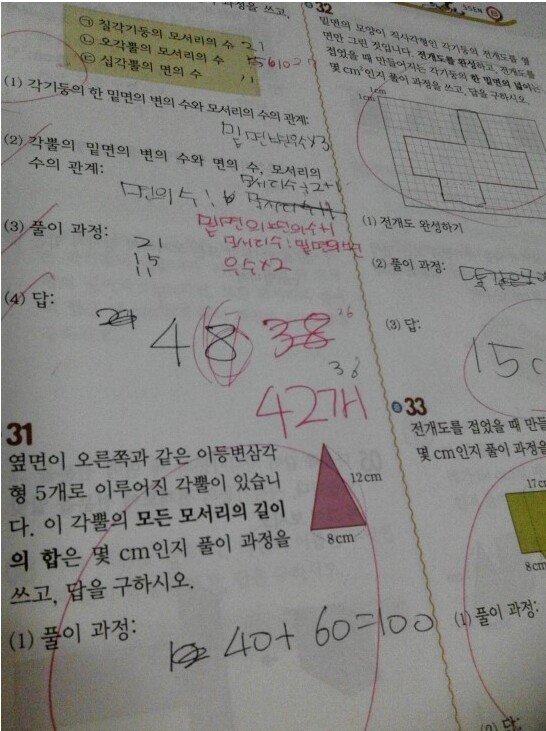 과정을 쓰고,
㉠ 칠각기둥의 모서리의 수 21
㉡ 오각뿔의 모서리의 수
㉢ 십각뿔의 면의 수 11
(1) 각기둥의 한 밑면의 변의 수와 모서리의 수의 관계:
(2) 각뿔의 밑면의 변의 수와 면의 수, 모서리의
수의 관계:
면의수:
밑면의변의수+1
(3) 풀이 과정:
21
15
11
모서리수:밑면의변
의수×2
(4) 답:
48 38
42개
31
옆면이 오른쪽과 같은 이등변삼각
형 5개로 이루어진 각뿔이 있습니
다. 이 각뿔의 모든 모서리의 길이
의 합은 몇 cm인지 풀이 과정을
쓰고, 답을 구하시오.
12cm
8cm
(1) 풀이 과정:
40+60=100
32
SSEN
밑면의 모양이 직사각형인 각기둥의 전개도를
면만 그린 것입니다. 전개도를 완성하고, 전개도를
접었을 때 만들어지는 각기둥의 한 밑면의 넓이는
몇 cm²인지 풀이 과정을 쓰고, 답을 구하시오.
1cm
1cm
(1) 전개도 완성하기
(2) 풀이 과정:
(3) 답:
15
33
전개도를 접었을 때 만들
몇 cm인지 풀이 과정을
17c
8cm
(1) 풀이 과정:
(2) 답: